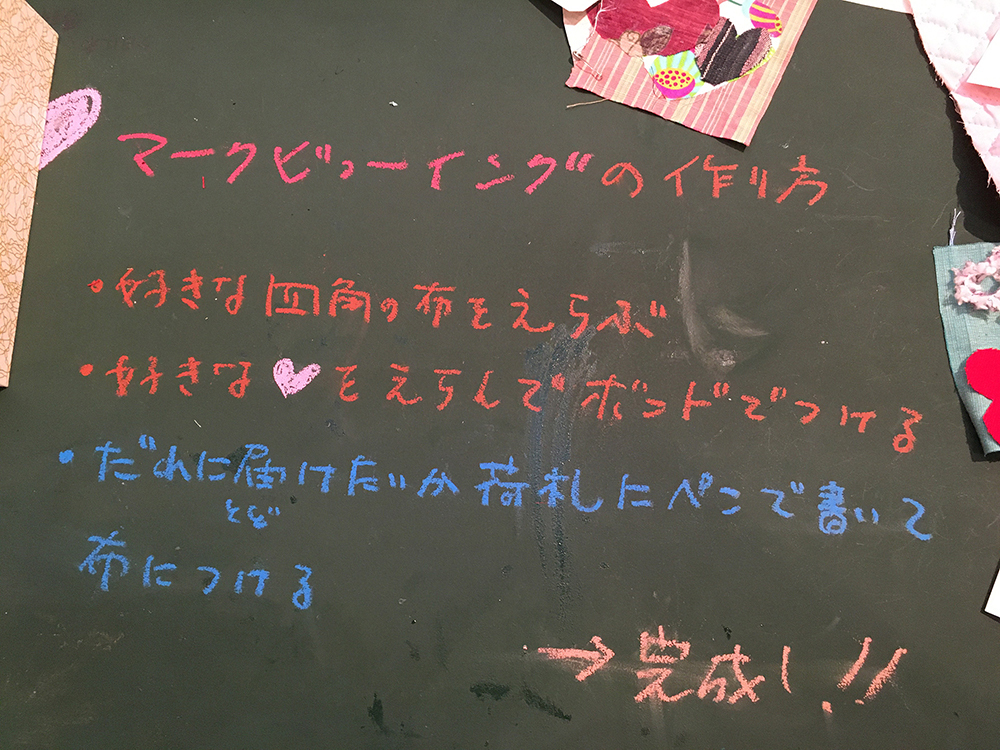 マークビューイングの作り方
・好きな四角の布をえらぶ
・好きな♥をえらんでボンドでつける
・だれに届けたいか荷札にペンで書いて
とど
布につける
→完成!!!